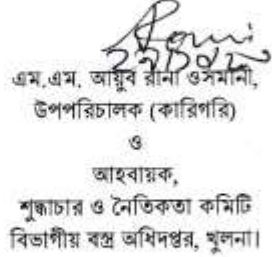 এম.এম. আয়ুব রানা ওসমানী,
উপপরিচালক (কারিগরি)
ও
আহবায়ক,
শুদ্ধাচার ও নৈতিকতা কমিটি
বিভাগীয় বস্ত্র অধিদপ্তর, খুলনা।